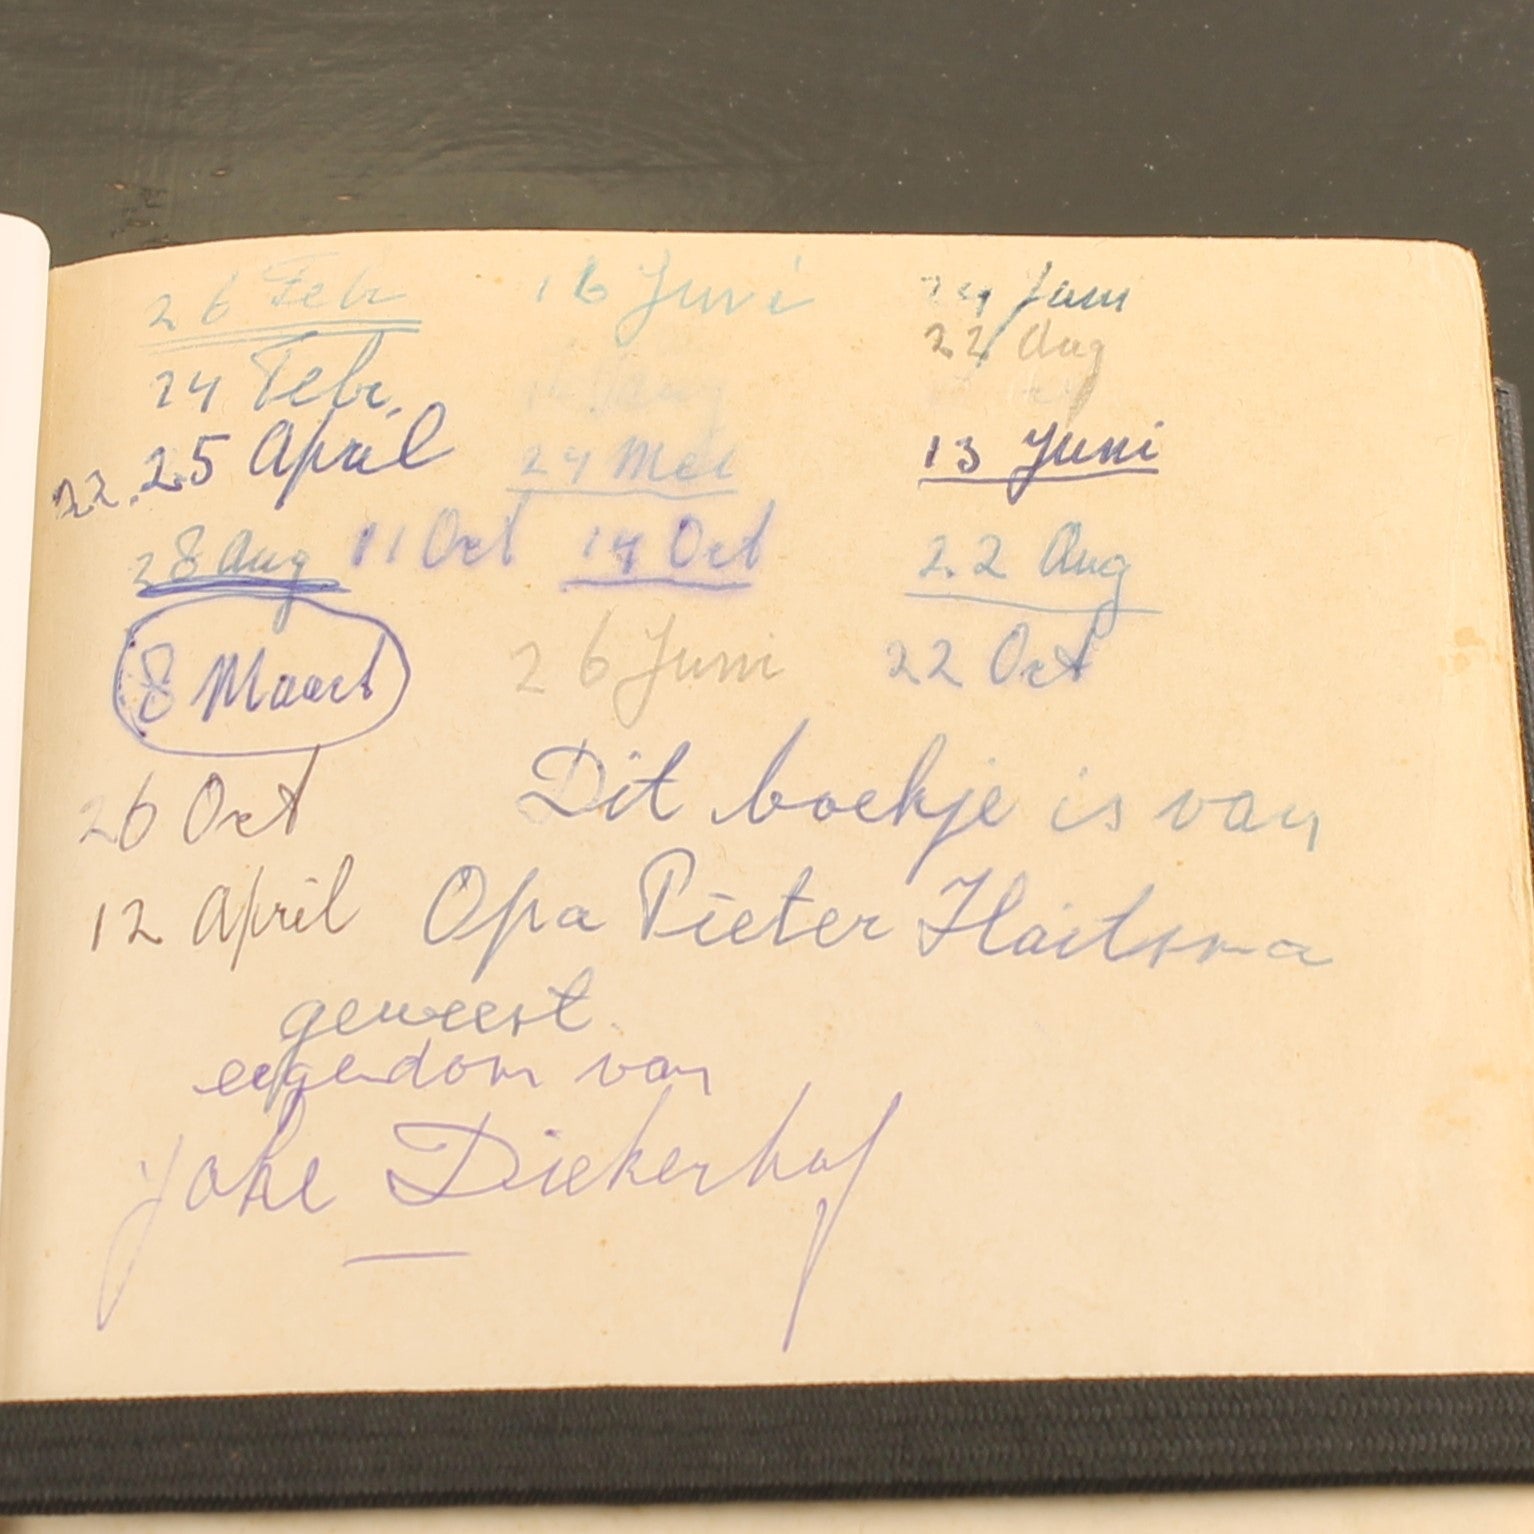 26 Febr 16 Juni 24 Juni
22 Aug
24 Febr.
22. 25 April 24 Mei 13 Juni
28 Aug 11 Oct 14 Oct 22 Aug
8 Maart 26 Juni 22 Oct
26 Oct Dit boekje is van
12 April Opa Pieter Haitsma
geweest
eigendom van
Joke Diekerhof